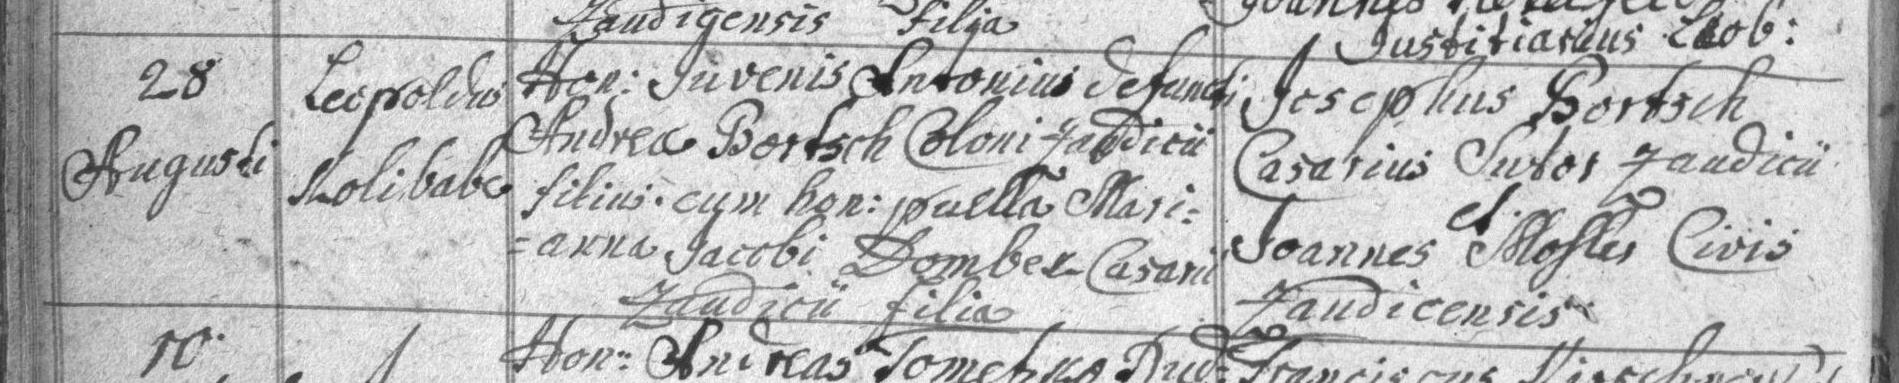 Zaudigensis filia
Justitiarius
28
Augusti
Leopoldus
Kolibabe
Hon: Juvenis Antonius defuncti
Andrea Bortsch Coloni Zaudicii
filius. cum hon: puella Mari:
=anna Jacobi Domber Casarii
Zaudicii filia
Josephus Bortsch
Casarius Sutor Zaudicii
Joannes Mosler Civis
Zaudicensis
10.
Hon: Andreas